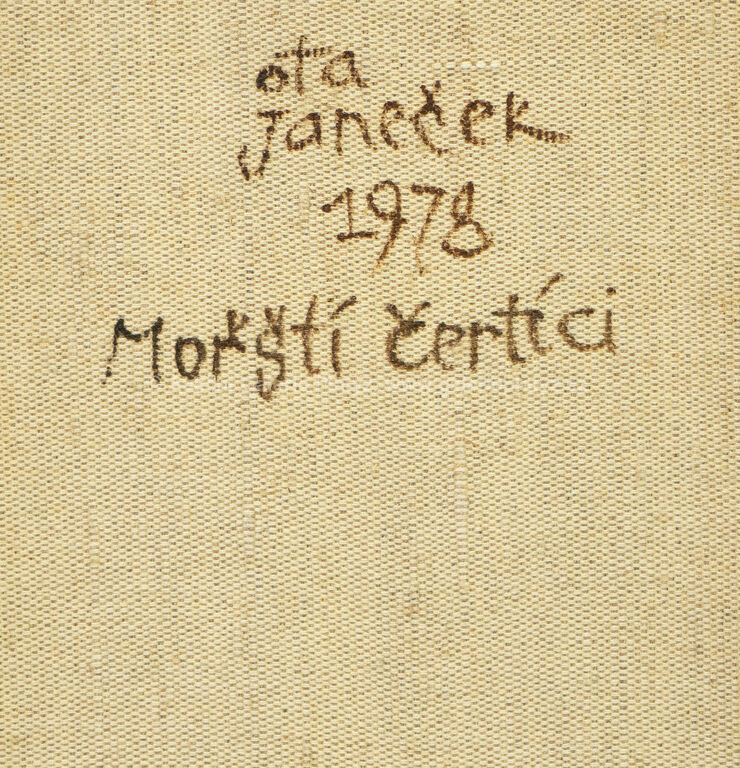 ota
Janeček
1978
Mořští čertíci